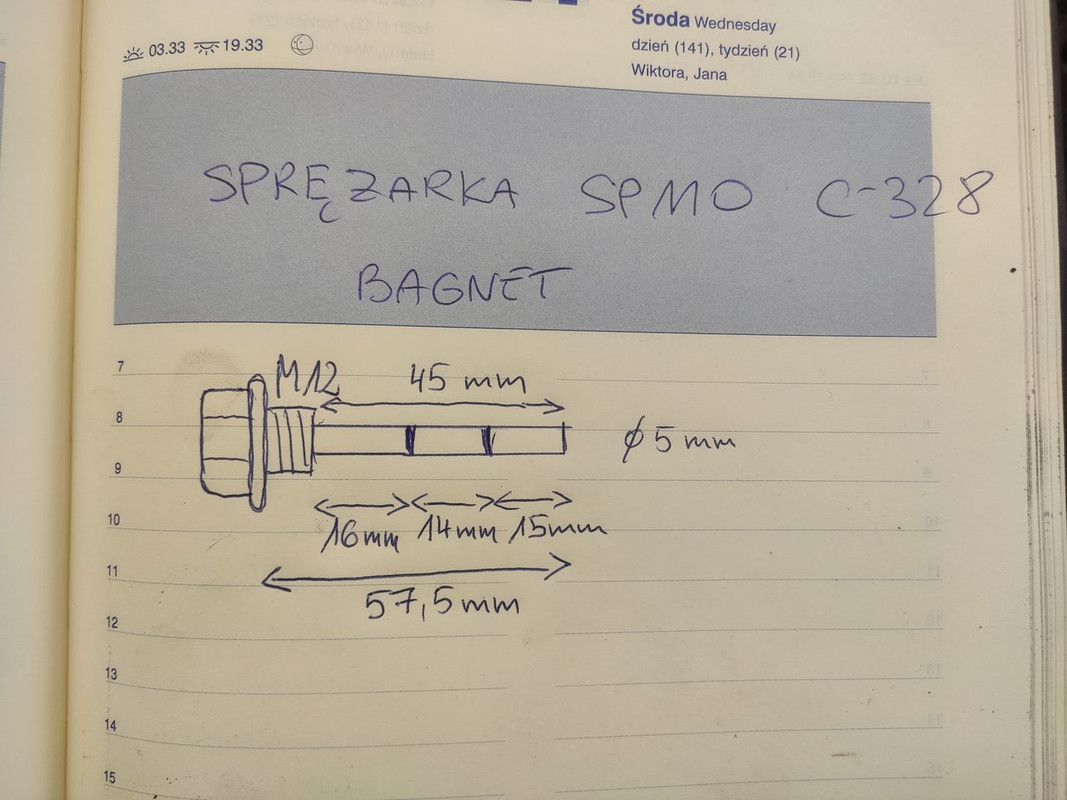 Środa Wednesday
03.33 19.33
dzień (141), tydzień (21)
Wiktora, Jana
SPRĘŻARKA SPMO C-328
BAGNET
7
M12
45 mm
8
ϕ 5 mm
9
10
16mm 14mm 15mm
11
57,5mm
12
13
14
15